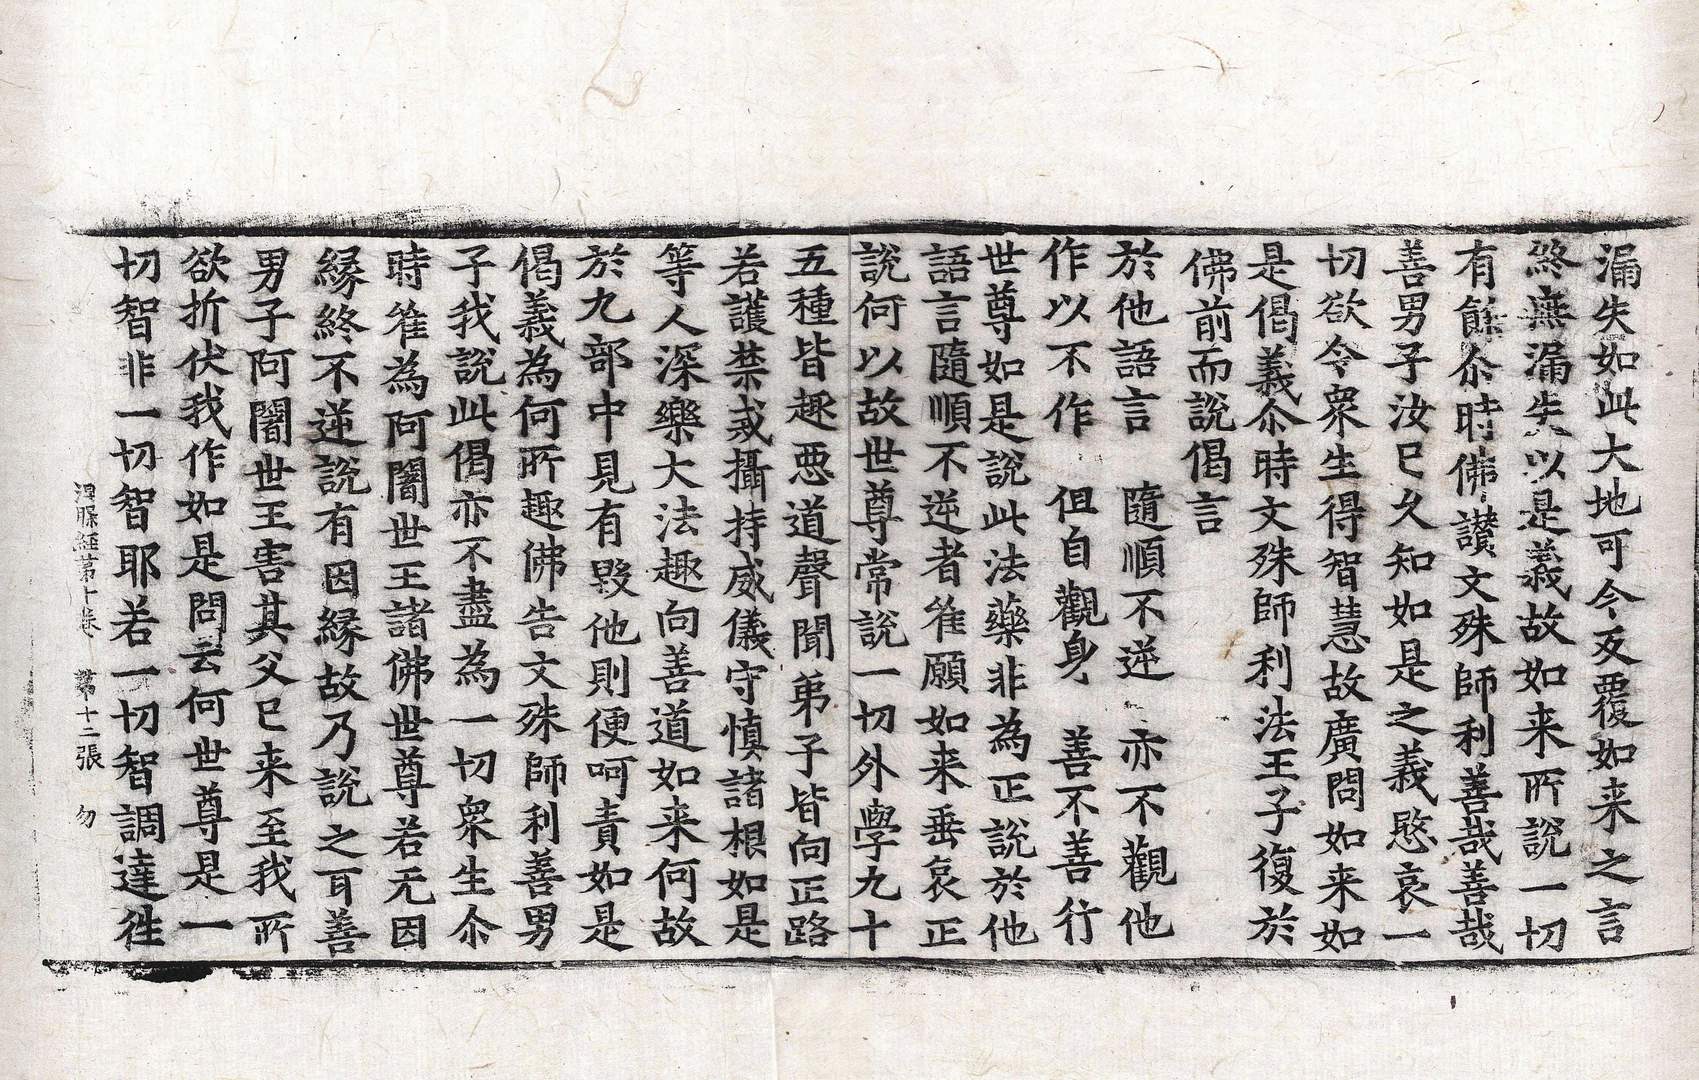 漏失如此大地可令反覆如来之言
終無漏失以是義故如来所說一切
有餘尒時佛讃文殊師利善哉善哉
善男子汝已久知如是之義愍哀一
切欲令衆生得智慧故廣問如来如
是偈義尒時文殊師利法王子復於
佛前而說偈言
於他語言 隨順不逆 亦不觀他
作以不作 但自觀身 善不善行
世尊如是說此法藥非為正說於他
語言隨順不逆者唯願如来垂哀正
說何以故世尊常說一切外學九十
五種皆趣惡道聲聞弟子皆向正路
若護禁戒攝持威儀守慎諸根如是
等人深樂大法趣向善道如来何故
於九部中見有毀他則便呵責如是
偈義為何所趣佛告文殊師利善男
子我說此偈亦不盡為一切衆生尒
時唯為阿闍世王諸佛世尊若无因
緣終不逆說有因緣故乃說之耳善
男子阿闍世王害其父已来至我所
欲折伏我作如是問云何世尊是一
切智非一切智耶若一切智調達往
涅槃経第十卷 第十二張 勿